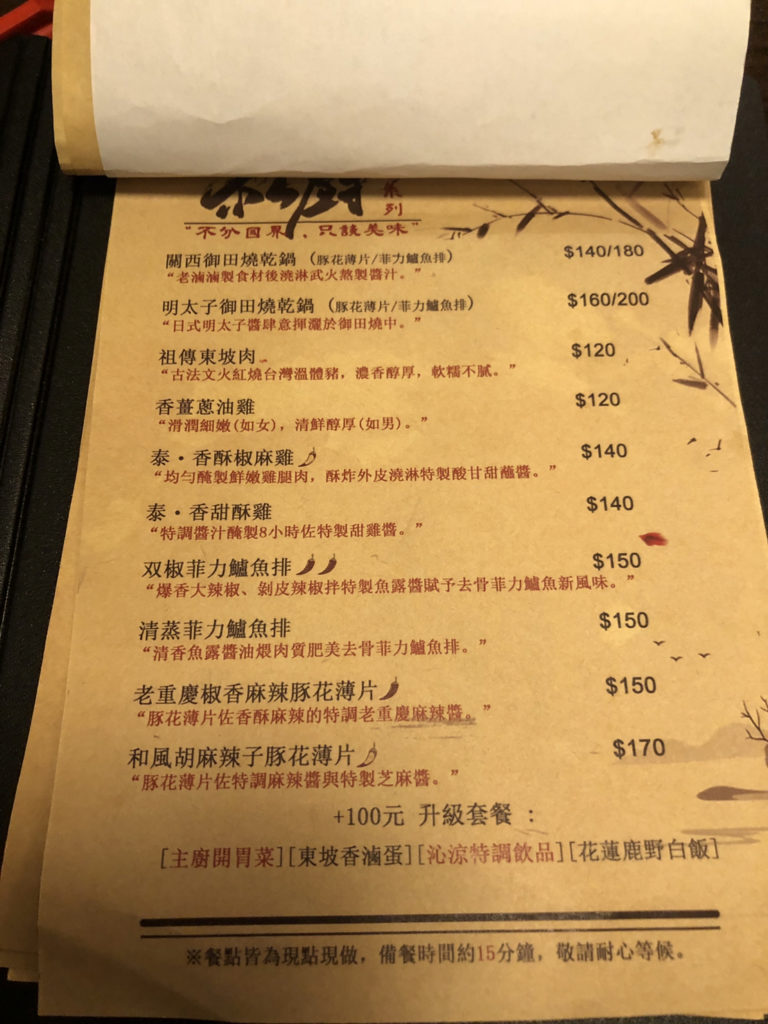 系列
"不分國界、只談美味"
關西御田燒乾鍋 (豚花薄片/菲力鱸魚排) $140/180
"老滷滷製食材後澆淋武火熬製醬汁。"
明太子御田燒乾鍋 (豚花薄片/菲力鱸魚排) $160/200
"日式明太子醬肆意揮灑於御田燒中。"
祖傳東坡肉 $120
"古法文火紅燒台灣溫體豬，濃香醇厚，軟糯不膩。"
香薑蔥油雞 $120
"滑潤細嫩(如女)，清鮮醇厚(如男)。"
泰·香酥椒麻雞 $140
"均勻醃製鮮嫩雞腿肉，酥炸外皮澆淋特製酸甘甜蘸醬。"
泰·香甜酥雞 $140
"特調醬汁醃製8小時佐特製甜雞醬。"
双椒菲力鱸魚排 $150
"爆香大辣椒、剝皮辣椒拌特製魚露醬賦予去骨菲力鱸魚新風味。"
清蒸菲力鱸魚排 $150
"清香魚露醬油煨肉質肥美去骨菲力鱸魚排。"
老重慶椒香麻辣豚花薄片 $150
"豚花薄片佐香酥麻辣的特調老重慶麻辣醬。"
和風胡麻辣子豚花薄片 $170
"豚花薄片佐特調麻辣醬與特製芝麻醬。"
+100元 升級套餐 :
[主廚開胃菜][東坡香滷蛋][沁涼特調飲品][花蓮鹿野白飯]
※餐點皆為現點現做，備餐時間約15分鐘，敬請耐心等候。